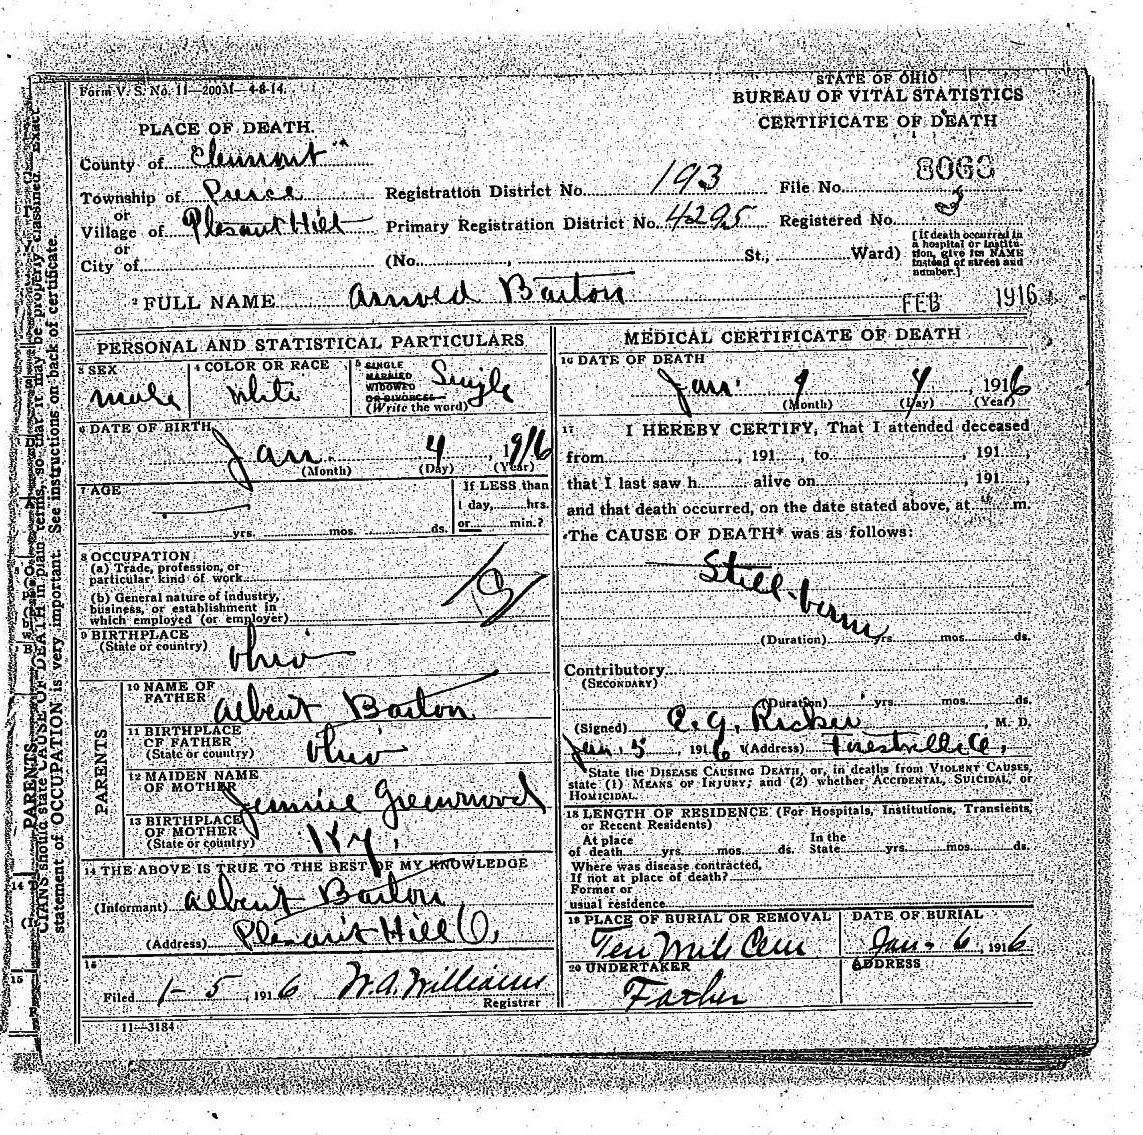 Form V. S. No. 11—200M—4-8-14.
STATE OF OHIO
BUREAU OF VITAL STATISTICS
CERTIFICATE OF DEATH
PLACE OF DEATH.
County of Clermont
Township of Pierce
or
Village of Plesant Hill
or
City of
Registration District No. 193
File No. 8063
Primary Registration District No. 4295
Registered No. 3
(No. , St.; Ward)
[If death occurred in
a hospital or institu-
tion, give its NAME
instead of street and
number.]
2 FULL NAME Arnold Barton
FEB 1916
PERSONAL AND STATISTICAL PARTICULARS
3 SEX
male
4 COLOR OR RACE
White
5 SINGLE
MARRIED
WIDOWED
OR DIVORCED
(Write the word)
Single
6 DATE OF BIRTH
Jan. 4, 1916
(Month) (Day) (Year)
7 AGE
yrs. mos. ds.
If LESS than
1 day, hrs.
or min.?
8 OCCUPATION
(a) Trade, profession, or
particular kind of work
(b) General nature of industry,
business, or establishment in
which employed (or employer)
9 BIRTHPLACE
(State or country)
Ohio
PARENTS
10 NAME OF
FATHER
Albert Barton
11 BIRTHPLACE
OF FATHER
(State or country)
Ohio
12 MAIDEN NAME
OF MOTHER
Jennie Greenwood
13 BIRTHPLACE
OF MOTHER
(State or country)
Ky.
14 THE ABOVE IS TRUE TO THE BEST OF MY KNOWLEDGE
(Informant) Albert Barton
(Address) Plesant Hill O.
15
Filed 1-5, 1916 W.A. Williams
Registrar
11—3184
MEDICAL CERTIFICATE OF DEATH
16 DATE OF DEATH
Jan. 4, 1916
(Month) (Day) (Year)
17 I HEREBY CERTIFY, That I attended deceased
from , 191 , to , 191 ,
that I last saw h alive on , 191 ,
and that death occurred, on the date stated above, at m.
The CAUSE OF DEATH* was as follows:
Still-born
(Duration) yrs. mos. ds.
Contributory
(SECONDARY)
(Duration) yrs. mos. ds.
(Signed) , M. D.
Jan. 5, 1916 (Address)
State the DISEASE CAUSING DEATH, or, in deaths from VIOLENT CAUSES,
state (1) MEANS OF INJURY; and (2) whether ACCIDENTAL, SUICIDAL, or
HOMICIDAL.
18 LENGTH OF RESIDENCE (For Hospitals, Institutions, Transients,
or Recent Residents)
At place
of death yrs. mos. ds.
In the
State yrs. mos. ds.
Where was disease contracted,
If not at place of death?
Former or
usual residence
19 PLACE OF BURIAL OR REMOVAL
Ten Mile Cem
DATE OF BURIAL
Jan-6, 1916
20 UNDERTAKER
Father
ADDRESS
CIANS should state CAUSE OF DEATH in plain terms, so that it may be properly classified. Exact
statement of OCCUPATION is very important. See instructions on back of certificate.